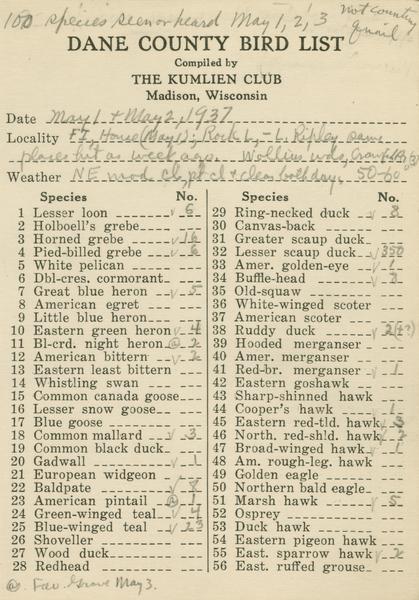 100 species seen or heard May 1, 2, 3 Not counting quail
DANE COUNTY BIRD LIST
Compiled by
THE KUMLIEN CLUB
Madison, Wisconsin
Date May 1 + May 2, 1937
Locality Ft. House (May 1); Rock L. - L. Ripley same
places hit as week ago.
Weather NE mod. cl, pt cl + clear both days, 50-60°
Species No.
1 Lesser loon ✓ 6
2 Holboell's grebe
3 Horned grebe ✓ 16
4 Pied-billed grebe ✓ 6
5 White pelican
6 Dbl-cres. cormorant
7 Great blue heron ✓ 5
8 American egret
9 Little blue heron
10 Eastern green heron ✓ 4
11 Bl-crd. night heron @ 2
12 American bittern ✓ 2
13 Eastern least bittern
14 Whistling swan
15 Common canada goose
16 Lesser snow goose
17 Blue goose
18 Common mallard ✓ 3
19 Common black duck
20 Gadwall ✓ 1
21 European widgeon
22 Baldpate ✓ 8
23 American pintail @ 1
24 Green-winged teal ✓ 4
25 Blue-winged teal ✓ 23
26 Shoveller
27 Wood duck
28 Redhead
@. Fav. Grove May 3.
Species No.
29 Ring-necked duck ✓ 8
30 Canvas-back
31 Greater scaup duck
32 Lesser scaup duck ✓ 350
33 Amer. golden-eye ✓ 1
34 Buffle-head ✓ 3
35 Old-squaw
36 White-winged scoter
37 American scoter
38 Ruddy duck ✓ 2(+?)
39 Hooded merganser
40 Amer. merganser
41 Red-br. merganser ✓ 1
42 Eastern goshawk
43 Sharp-shinned hawk
44 Cooper's hawk ✓ 1
45 Eastern red-tld. hawk ✓ 3
46 North. red-sh'ld. hawk ✓
47 Broad-winged hawk ✓ 1
48 Am. rough-leg. hawk
49 Golden eagle
50 Northern bald eagle
51 Marsh hawk ✓ 5
52 Osprey
53 Duck hawk
54 Eastern pigeon hawk
55 East. sparrow hawk ✓ 2
56 East. ruffed grouse